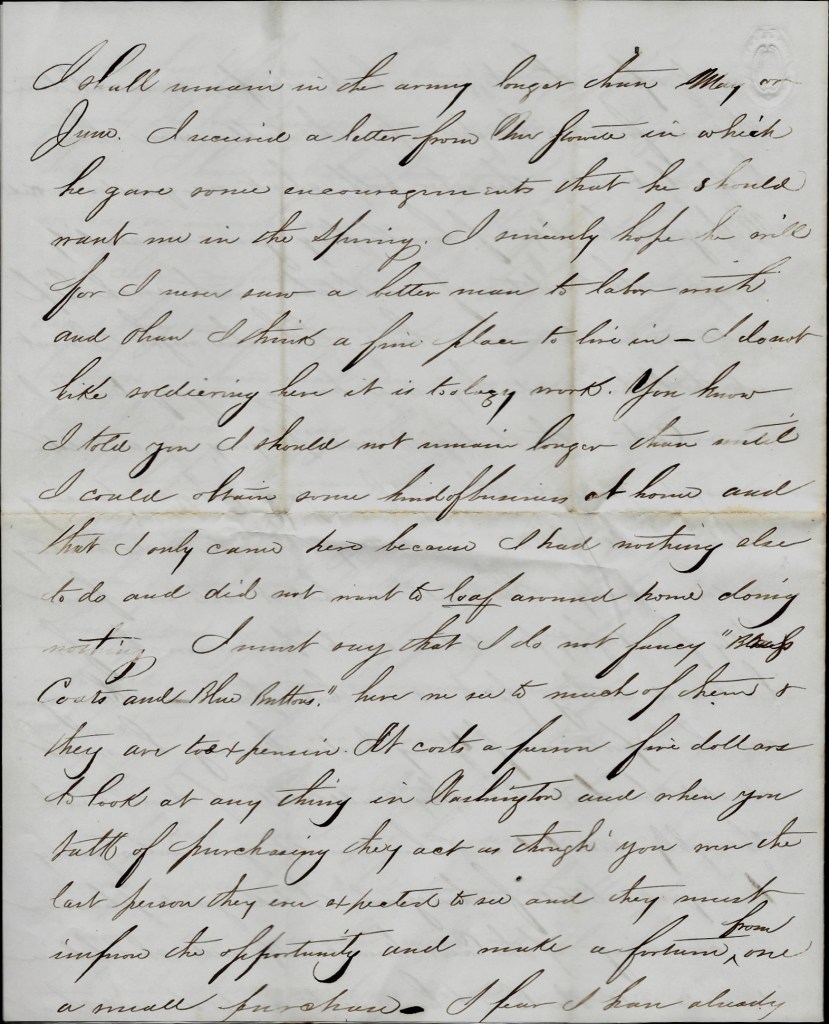 I shall remain in the army longer than May or
June. I received a letter from Mr in which
he gave some encouragements that he should
want me in the Spring. I sincerely hope he will
for I never saw a better man to labor with
and I think a fine place to live in – I do not
like soldiering here it is to lazy work. You know
I told you I should not remain longer than until
I could obtain some kind of business at home and
that I only came here because I had nothing else
to do and did not want to loaf around home doing
nothing I must say that I do not fancy "
Coats and Blue Buttons." here we see to much of them &
they are to expensive. It costs a person five dollars
to look at any thing in Washington and when you
talk of purchasing they act as though you were the
last person they ever expected to see and they must
improve the opportunity and make a fortune from one
a small purchase – I fear I have already